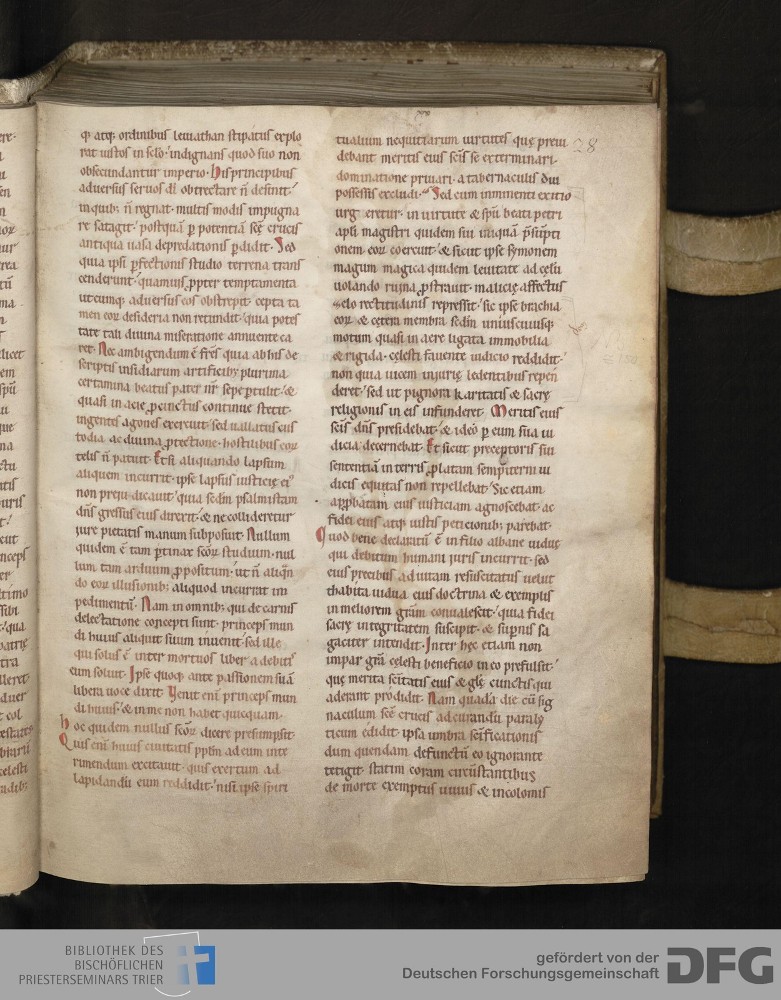 q; atq; ordinibus leuiathan stipatus explo
rat iustos in sclo· indignans quod suo non
obsecundantur imperio· His principibus
aduersus seruos di obtrectare n desinit·
in quib; n regnat· multis modis impugna
re satagit· postqua p potentia sce crucis
antiqua uasa depredationis pdidit· Sed
quia ipsi pfectionis studio terrena trans
cenderunt· quamuis ppter temptamenta
utcumq; aduersus eos obstrepit· cepta ta
men eor desideria non retundit· quia potes
tate tali diuina miseratione annuente ca
ret· Nec ambigendum e frs quia ab his de
scriptis insidiarum artificib; plurima
certamina beatus pater nr sepe ptulit· &
quasi in acie pcinctus continue stetit·
ingentes agones exercuit· sed uallatus cus
todia ac diuina ptectione· hostilibus eor
telis n patuit· Etsi aliquando lapsum
aliquem incurrit· ipse lapsus iusticie ei
non preiudicauit· quia scdm psalmistam
dns gressus eius direxit· & ne collideretur
iure pietatis manum supposuit· Nullum
quidem e tam ptinax scor studium· nul
lum tam arduum ppositum· ut n aliqn
do eor illusionib; aliquod incurrat im
pedimentu· Nam in omnib; qui de carnis
delectatione concepti sunt· princeps mun
di huius aliquit suum inuenit· sed ille
qui solus e inter mortuos liber a debitis
eum soluit· Ipse quoq; ante passionem sua
libera uoce dixit· Uenit eni princeps mun
di huius· & in me non habet quicquam·
hoc quidem nullus scor dicere presumpsit·
Quis eni huius ciuitatis pplm ad eum inte
rimendum excitauit· quis exertum ad
lapidandu eum reddidit· nisi ipse spiri
28
tualium nequitiarum uirtutes que preui
debant meritis eius seis se exterminari·
dominatione priuari· a tabernaculis diu
possessis excludi· Sed cum inminenti exitio
urgeretur· in uirtute & spu beati petri
apli magistri quidem sui iniqua psupti
onem eor coercuit· & sicut ipse symonem
magum magica quidem leuitate ad celu
uolando ruina pstrauit· malicie affectus
zelo rectitudinis repressit· sic ipse brachia
eor & cetera membra scdm uniuscuiusq;
motum quasi in aere ligata immobilia
& rigida· celesti fauente iudicio reddidit·
non quia uicem iniurie ledentibus repen
deret· sed ut pignora karitatis & sacre
religionis in eis infunderet· Meritis eius
seis dns presidebat· & ideo p eum sua iu
dicia decernebat· Et sicut preceptoris sui
sententia in terris platam sempiterni iu
dicis equitas non repellebat· Sic etiam
appbatam eius iusticiam agnoscebat· ac
fidei eius atq; iustis peticionib; parebat·
Quod bene declaratu e in filio albane uidue
qui debitum humani iuris incurrit· sed
eius precibus ad uitam resuscitatus uelut
thabita uidua eius doctrina & exemplis
in meliorem gram conualescit· quia fidei
sacre integritatem suscipit· & supnis sa
gaciter intendit· Inter hec etiam non
impar gra celesti beneficio in eo prefulsit·
que merita scitatis eius & gle cunctis qui
aderant prodidit· Nam quada die cu sig
naculum sce crucis ad curandu paraly
ticum edidit· ipsa umbra scificationis
dum quendam defunctu eo ignorante
tetigit· statim coram circustantibus
de morte exemptus uiuus & incolomis
BIBLIOTHEK DES
BISCHÖFLICHEN
PRIESTERSEMINARS TRIER
gefördert von der
Deutschen Forschungsgemeinschaft
DFG